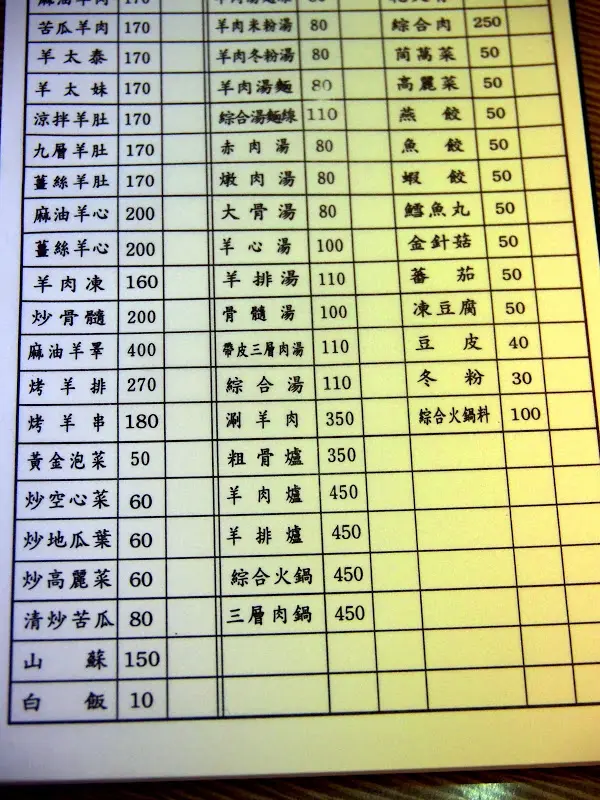 麻油羊肉 170
苦瓜羊肉 170
羊太泰 170
羊太妹 170
涼拌羊肚 170
九層羊肚 170
薑絲羊肚 170
麻油羊心 200
薑絲羊心 200
羊肉凍 160
炒骨髓 200
麻油羊睪 400
烤羊排 270
烤羊串 180
黃金泡菜 50
炒空心菜 60
炒地瓜葉 60
炒高麗菜 60
清炒苦瓜 80
山蘇 150
白飯 10
80
羊肉米粉湯 80
羊肉冬粉湯 80
羊肉湯麵 80
綜合湯麵線 110
赤肉湯 80
燉肉湯 80
大骨湯 80
羊心湯 100
羊排湯 110
骨髓湯 100
帶皮三層肉湯 110
綜合湯 110
涮羊肉 350
粗骨爐 350
羊肉爐 450
羊排爐 450
綜合火鍋 450
三層肉鍋 450
綜合肉 250
茼萬菜 50
高麗菜 50
燕餃 50
魚餃 50
蝦餃 50
鱈魚丸 50
金針菇 50
蕃茄 50
凍豆腐 50
豆皮 40
冬粉 30
綜合火鍋料 100